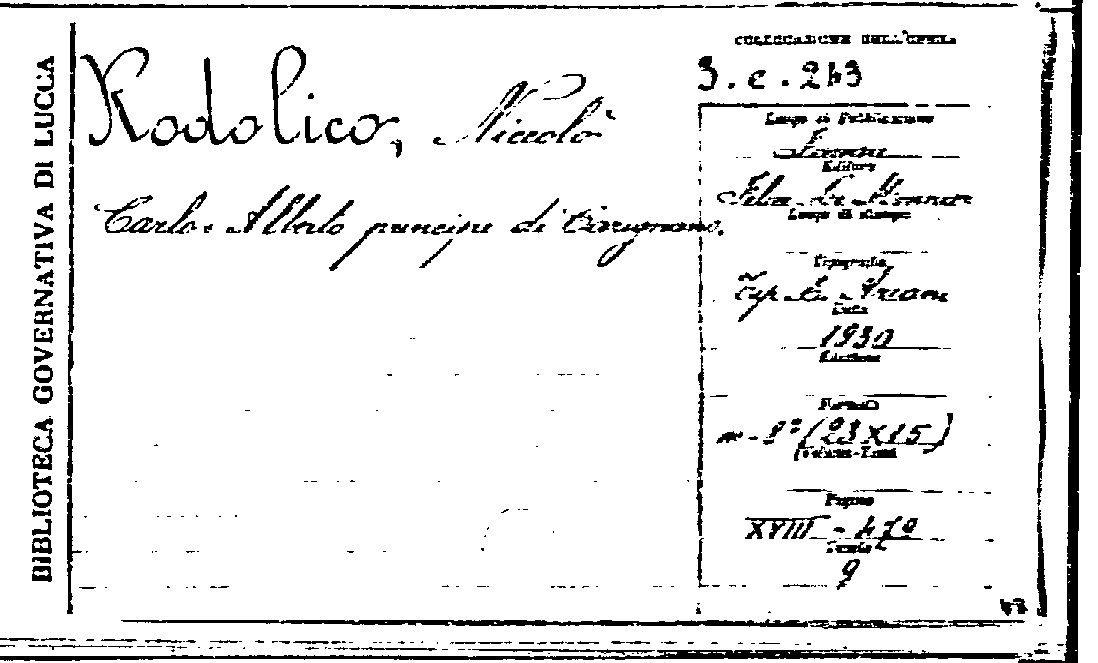 BIBLIOTECA GOVERNATIVA DI LUCCA
Rodolico, Niccolò
Carlo Alberto principe di Carignano.
COLLOCAZIONE DELL'OPERA
3. e. 243
Luogo di Pubblicazione
Firenze
Editore
Felice Le Monnier
Luogo di stampa
Tipografia
Tip. E. Ariani
Data
1930
Edizione
Formato
in-8° (23X15)
Volume-Tomo
Pagine
XVIII - 479
Tavole
9